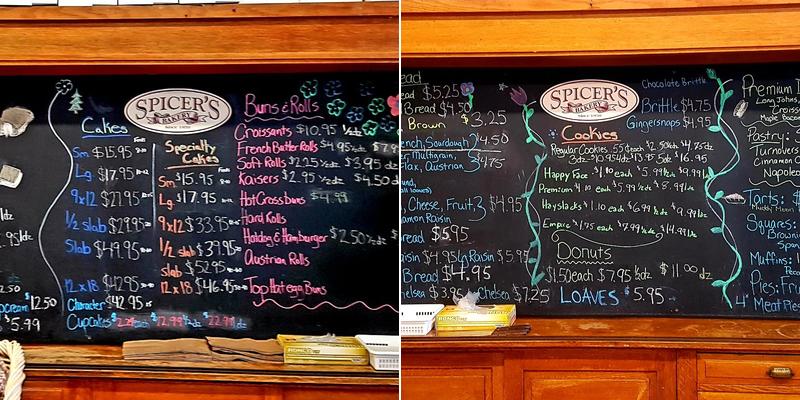 SPICER'S
BAKERY
Cakes
Sm $15.95
Lg $17.95
9x12 $27.95
1/2 slab $29.95
Slab $49.95
12x18 $42.95
Character $42.95
Cupcakes $2.24 each $12.99 1/2 dz $22.99 dz
Specialty
Cakes
Sm $15.95
Lg $17.95
9x12 $33.95
1/2 slab $39.95
slab $52.95
12x18 $46.95
Buns & Rolls
Croissants $10.95 1/2 dz
French Butter Rolls $4.95 1/2 dz
Soft Rolls $2.25 1/2 dz $3.95 dz
Kaisers $2.95 1/2 dz $4.50
Hot Cross buns $4.99
Hard Rolls
Hotdog & Hamburger $2.50 1/2 dz
Austrian Rolls
Top Hat egg Buns
$12.50
$5.99
ead
Bread $5.25
Bread $4.50
Brown $3.25
ench, Sourdough $4.50
er, Multigrain,
Rye, Austrian $4.75
Cheese, Fruit, $4.95
namon Raisin
read $5.95
aisin $4.95 Raisin $5.95
Bread $4.95
helsea $3.95 Chelsea $7.25
SPICER'S
BAKERY
Cookies
Regular Cookies .55¢ each $2.50 1/2dz $4.75 dz
3dz $10.95 4dz $13.95 5dz $16.95
Happy Face $1.10 each $5.99 1/2dz $9.99 dz
Premium $1.10 each $5.99 1/2dz $8.99 dz
Haystacks $1.10 each $6.99 1/2dz $9.99 dz
Empire $1.75 each $7.99 1/2dz $14.99 dz
Donuts
$1.50 each $7.95 1/2dz $11.00 dz
LOAVES $5.95
Chocolate Brittle
Brittle $4.75
Gingersnaps $4.95
Premium
Long Johns,
Croiss
Maple Pecan
Pastry:
Turnovers
Cinnamon
Napoleo
Tarts: $
Squares:
Browni
Muffins: 1
Pies: Fru
4"
Meat Pies